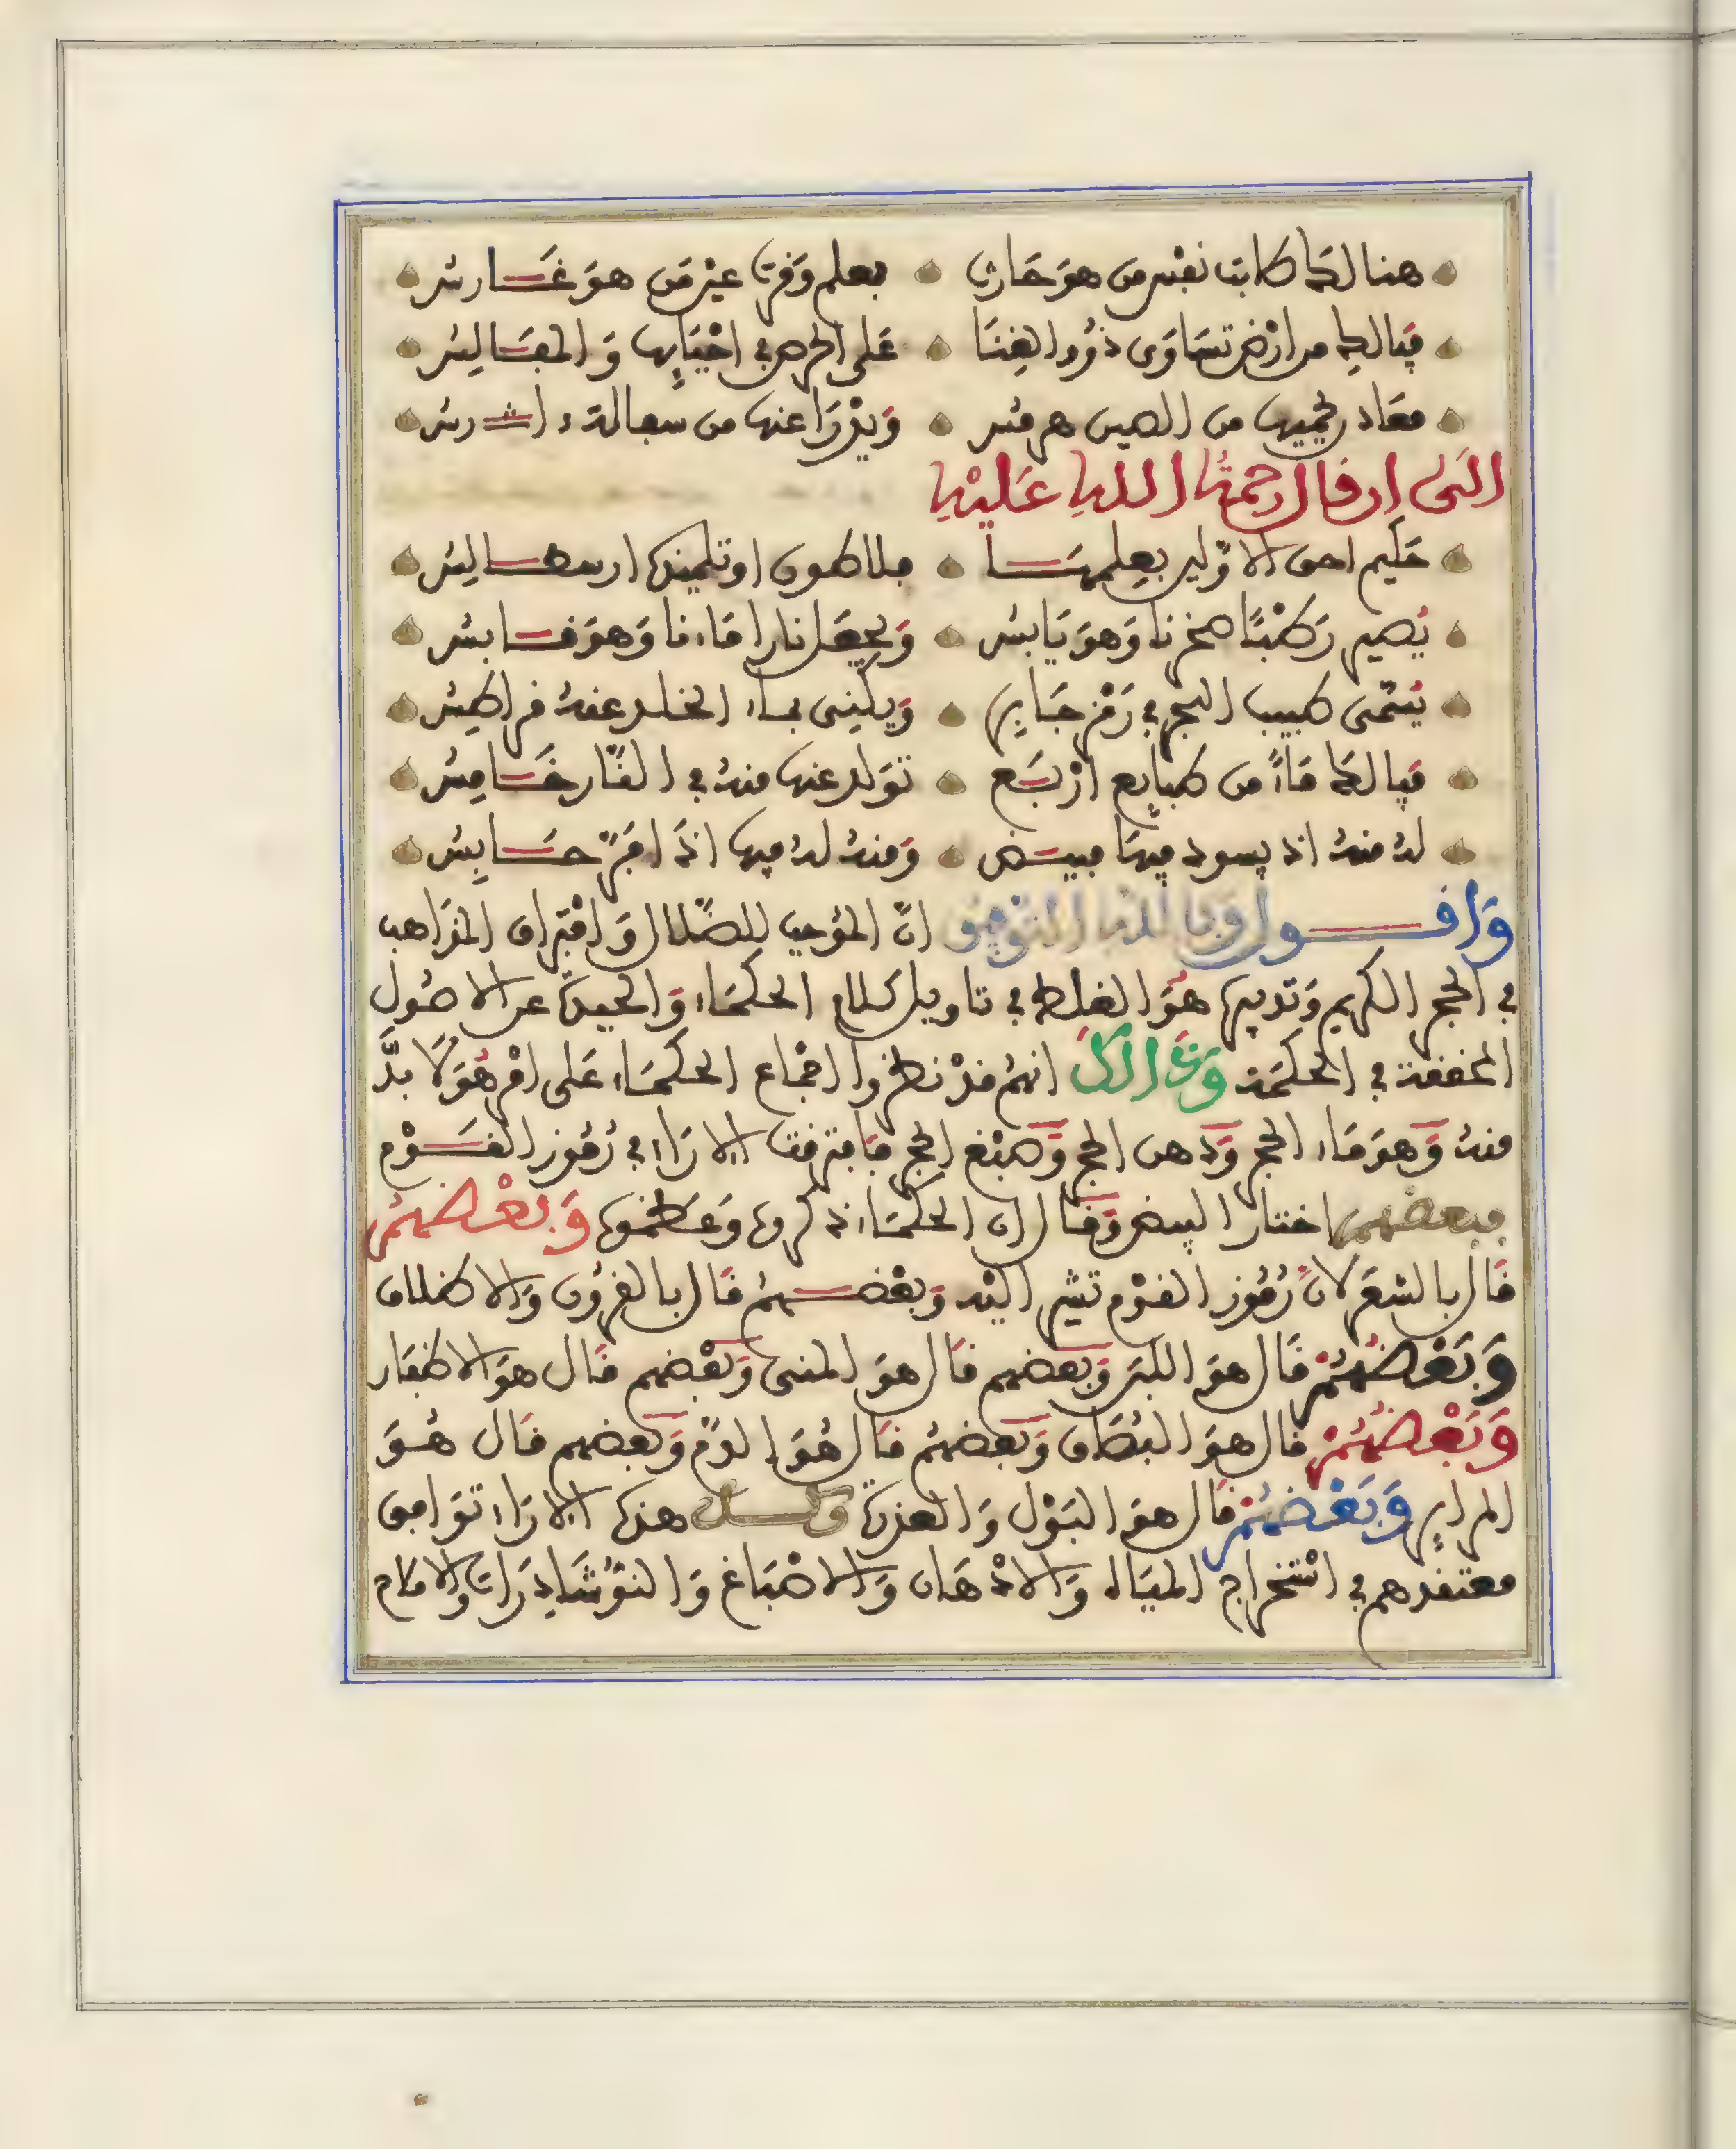 هنالك طابت نفس من هو حارث بعلم وقرت عين من هو غارس
فيا لك من ارض تساوى ذوو الغنا على الحرص في احيائها والمفالس
معادن يحميها من الصين هرمس ويذرا عنها من سعالة دارس
الى ان قال رحمة الله عليه
حكيم احق الاولين بعلمها فلاطون او تلميذه ارسطالس
يصير رطبا صخرنا وهو يابس ويجعل نارا ماءنا وهو قابس
يسمى طبيب البحر في رمز جابر ويكنى بماء الخلد عنه قراطس
فيا لك ماء من طبايع اربع تولد عنها منه في النار خامس
له منه اذ يسود فيها مبيض ومنه له فيها اذا فر حابس
واقول وبالله التوفيق ان الموجب للضلال وافتراق المذاهب
في الحجر الكريم وتدبيره هو الغلط في تاويل كلام الحكماء والحيدة عن الاصول
المحققة في الحكمة وذالك انهم قد نظروا اجماع الحكماء على امر هو لا بد
منه وهو ماء الحجر ودهن الحجر وصبغ الحجر فافترقت الاراء في رموز القوم
فبعضهم اختار البيض وقال ان الحكماء ذكروه وعظموه وبعضهم
قال بالشعر لان رموز القوم تشير اليه وبعضهم قال بالقرون والاظلاف
وبعضهم قال هو اللبن وبعضهم قال هو المنى وبعضهم قال هو الاظفار
وبعضهم قال هو البصاق وبعضهم قال هو الدم وبعضهم قال هو
المراير وبعضهم قال هو البول والعذرة وكل هذه الاراء توافق
معتقدهم في استخراج المياه والادهان والاصباغ والنوشاذرات والاملاح